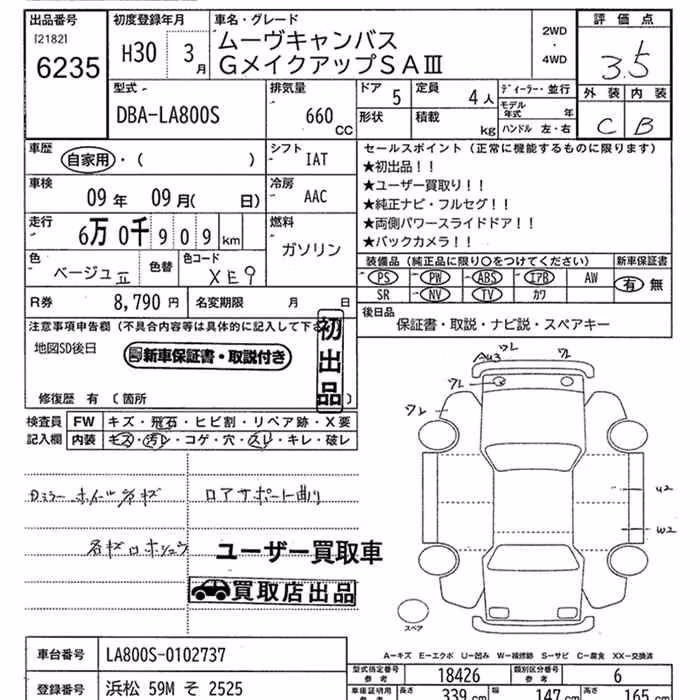 出品番号 初度登録年月 車名・グレード 評価点
[2182] 6235 H30 3月 ムーヴキャンバス 2WD・4WD 3.5
GメイクアップSAⅢ
外装 内装
C B
型式 排気量 ドア 定員 ディーラー・並行
DBA-LA800S 660CC 5 4人 モデル年式 年
形状 積載 kg ハンドル 左・右
車歴 自家用・( ) シフト IAT
車検 09年 09月( 日) 冷房 AAC
走行 6万0千909km 燃料 ガソリン
色 ベージュⅡ 色替 色コード XE9
R券 8,790円 名変期限 月 日
セールスポイント(正常に機能するものに限ります)
★初出品!!
★ユーザー買取り!!
★純正ナビ・フルセグ!!
★両側パワースライドドア!!
★バックカメラ!!
装備品(純正品に限り○をつけてください) 新車保証書
PS PW ABS エアB AW 有 無
SR NV TV カワ
後日品 保証書・取説・ナビ説・スペアキー
注意事項申告欄(不具合内容等は具体的に記入して下さ
地図SD後日 新車保証書・取説付き
初出品
修復歴 有 〔箇所 〕
検査員記入欄 FW キズ・飛石・ヒビ割・リペア跡・X要
内装 キズ・汚レ・コゲ・穴・スレ・キレ・破レ
ロアサポート曲り
ユーザー買取車
買取店出品
A43 ワレ ワレ
ワレ
ワレ
U2
W2
スペア
A-キズ E-エクボ U-凹み W-補修跡 S-サビ C-腐食 XX-交換済
車台番号 LA800S-0102737
登録番号 浜松 59M そ 2525
型式指定番号 参考 18426 類別区分番号 参考 6
車庫証明用 参考 長さ 339cm 幅 147cm 高さ 165cm